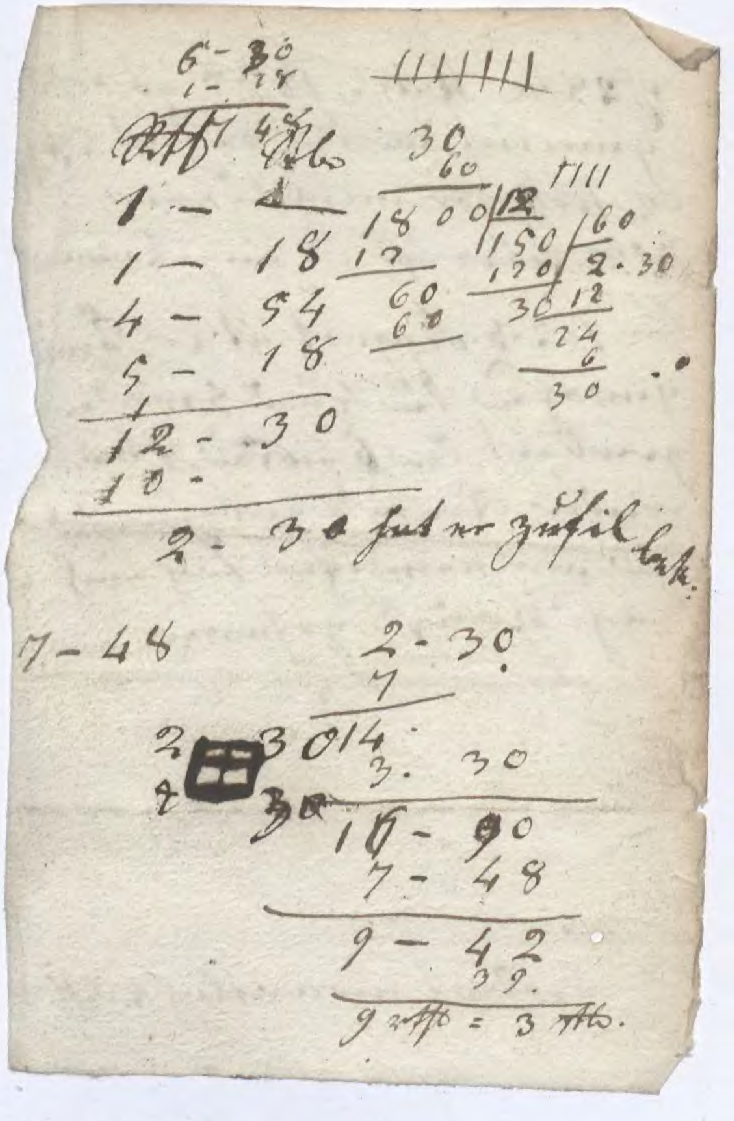 6 - 30
1 - 18
7 48
30
60
1 -
18 00 12
1 - 18
12
150 60
120 2. 30
4 - 54
60
30 12
60
24
5 - 18
6
1
30
12 - 30
10 -
2 - 30 hat er zufil
7 - 48
2 - 30
7
2 30
14
3. 30
30
16 - 90
7 - 48
9 - 42
39.
9 = 3